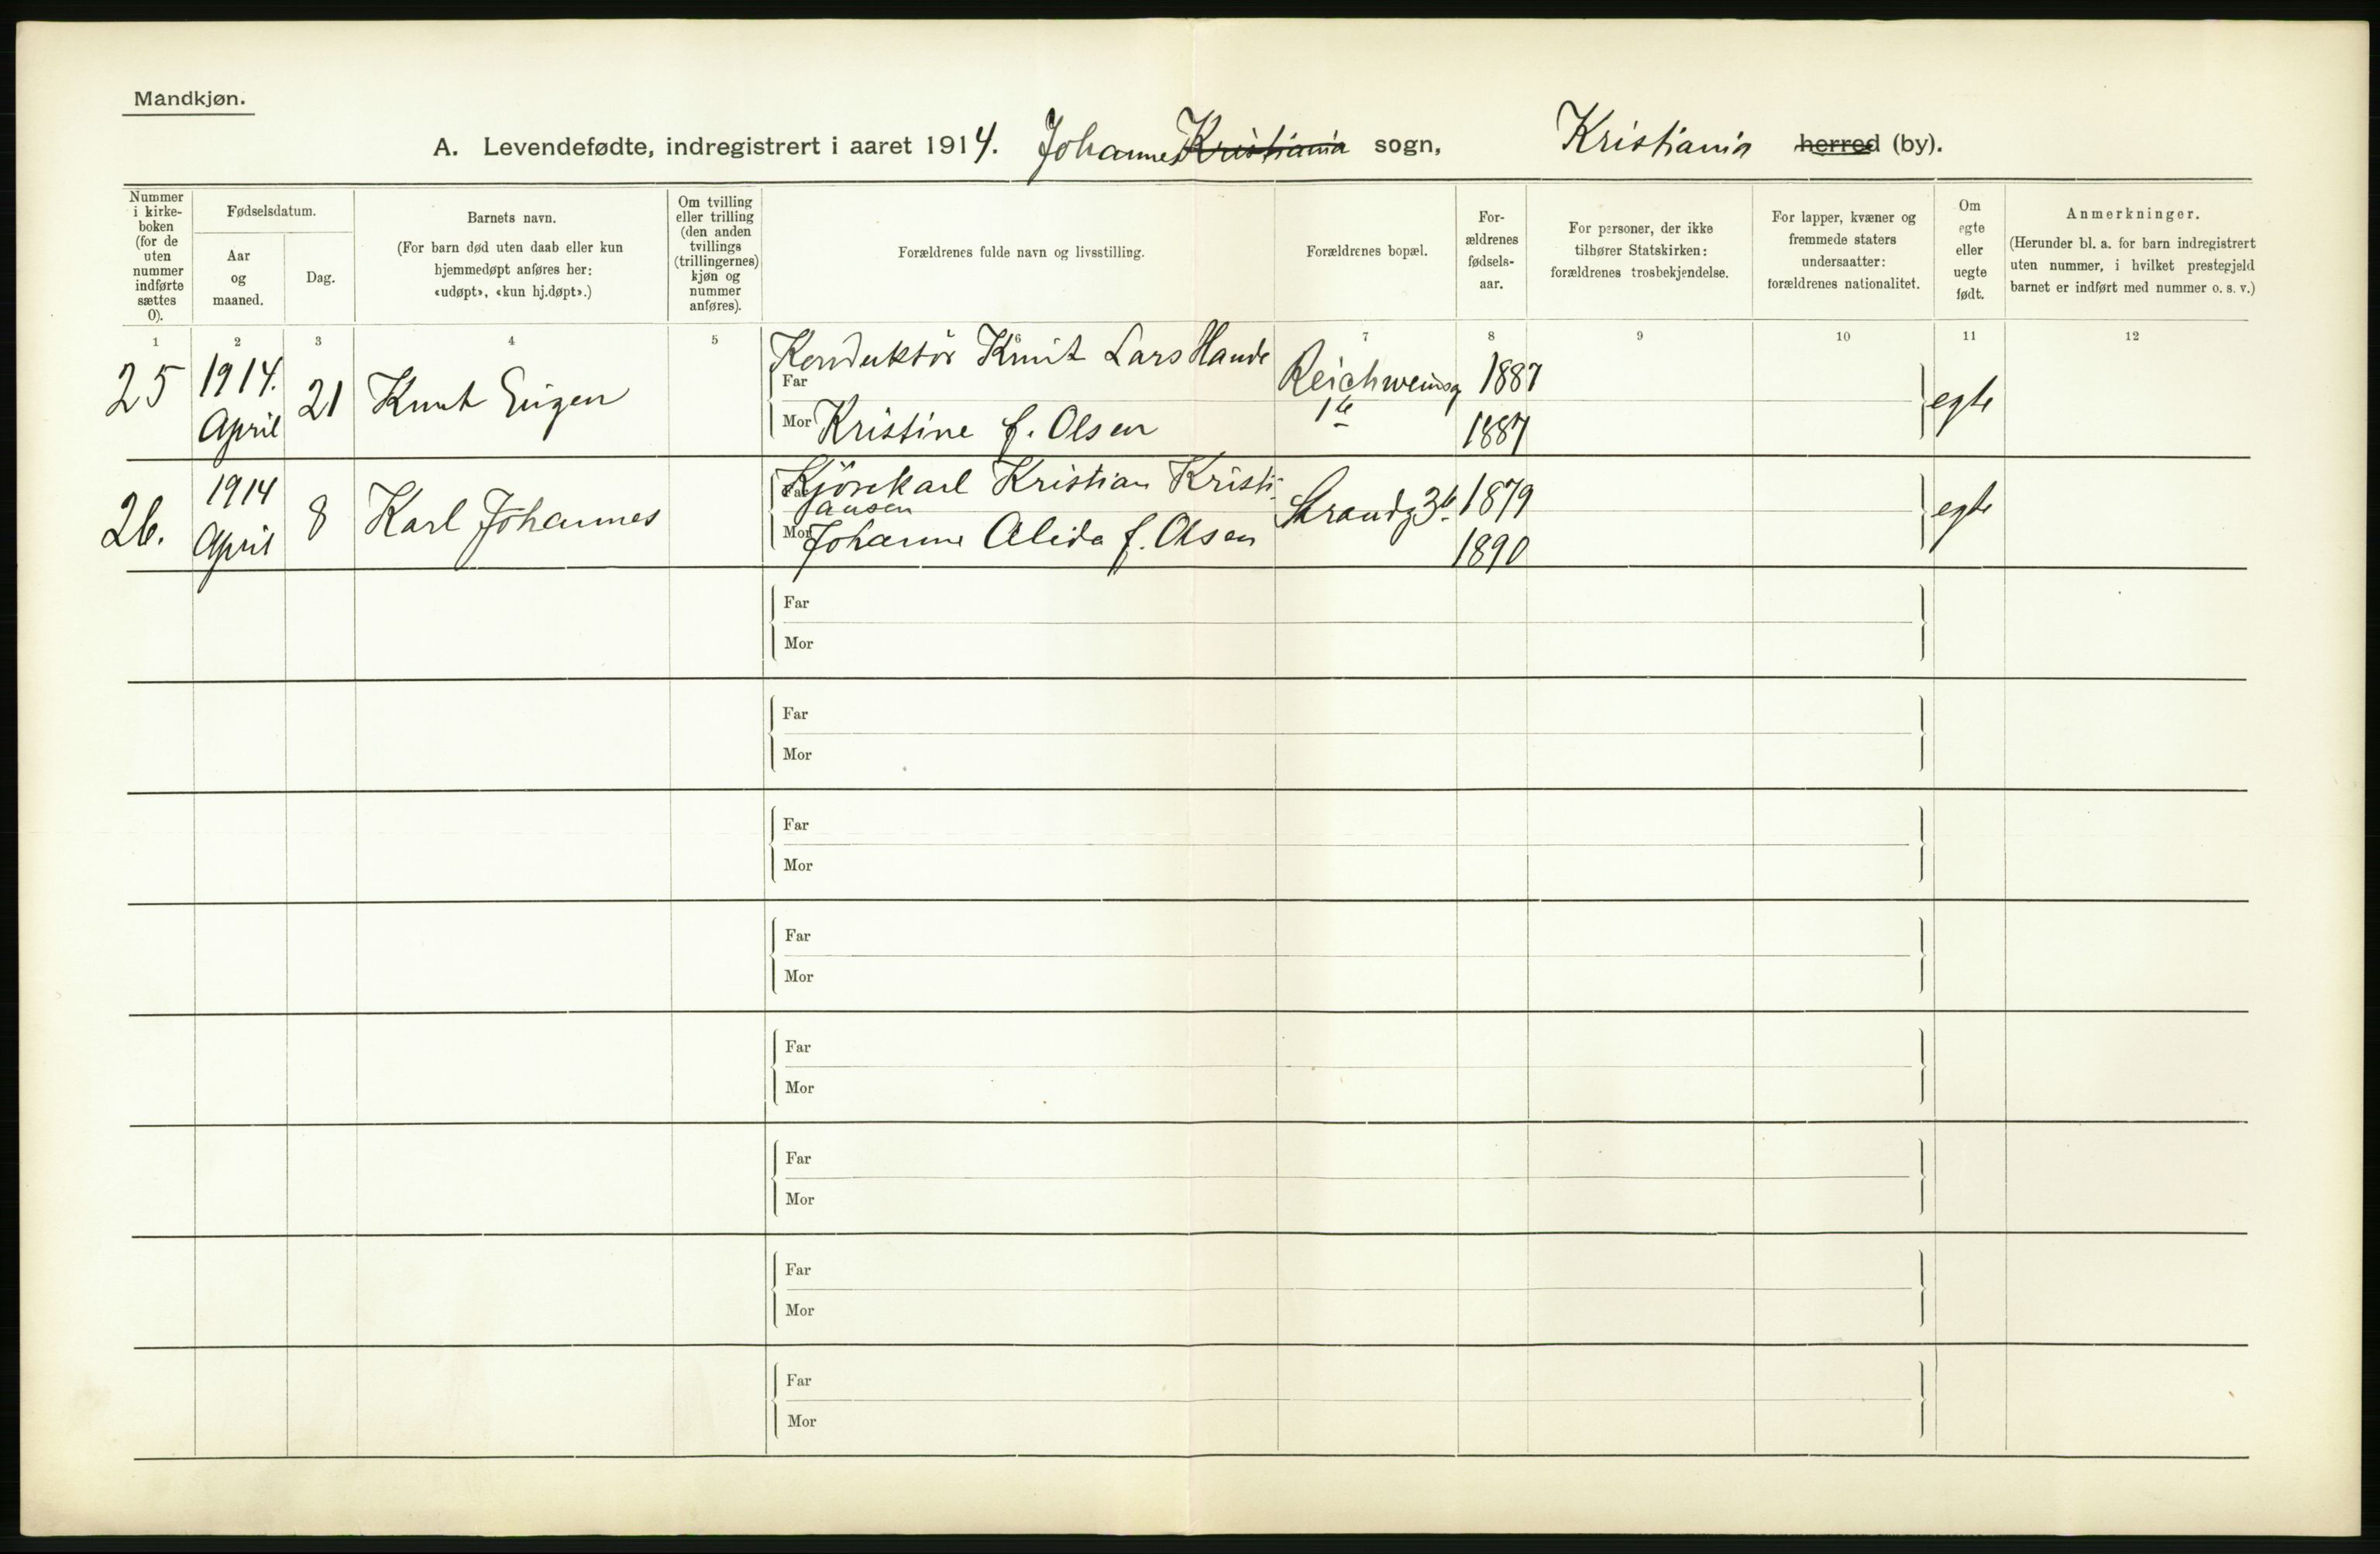 Mandkjøn.
A. Levendefødte, indregistrert i aaret 1914. Johannes Kristiania sogn, Kristiania herred (by).
Nummer i kirke-boken (for de uten nummer indførte sættes 0).
Fødselsdatum.
Aar og maaned.
Dag.
Barnets navn.
(For barn død uten daab eller kun hjemmedøpt anføres her: «udøpt», «kun hj.døpt».)
Om tvilling eller trilling (den anden tvillings (trillingernes) kjøn og nummer anføres).
Forældrenes fulde navn og livsstilling.
Forældrenes bopæl.
For-ældrenes fødsels-aar.
For personer, der ikke tilhører Statskirken: forældrenes trosbekjendelse.
For lapper, kvæner og fremmede staters undersaatter: forældrenes nationalitet.
Om egte eller uegte født.
Anmerkninger.
(Herunder bl. a. for barn indregistrert uten nummer, i hvilket prestegjeld barnet er indført med nummer o. s. v.)
1 2 3 4 5 6 7 8 9 10 11 12
25 1914. April 21 Knut Eugen
Far Konduktör Knut Lars Hande Reichweinsg 1b 1887
Mor Kristine f. Olsen 1887 egte
26. 1914 April 8 Karl Johannes
Far Kjörekarl Kristian Kristi-
ansen Strandg 3b 1879
Mor Johanne Alida f. Olsen 1890 egte
Far
Mor
Far
Mor
Far
Mor
Far
Mor
Far
Mor
Far
Mor
Far
Mor
Far
Mor